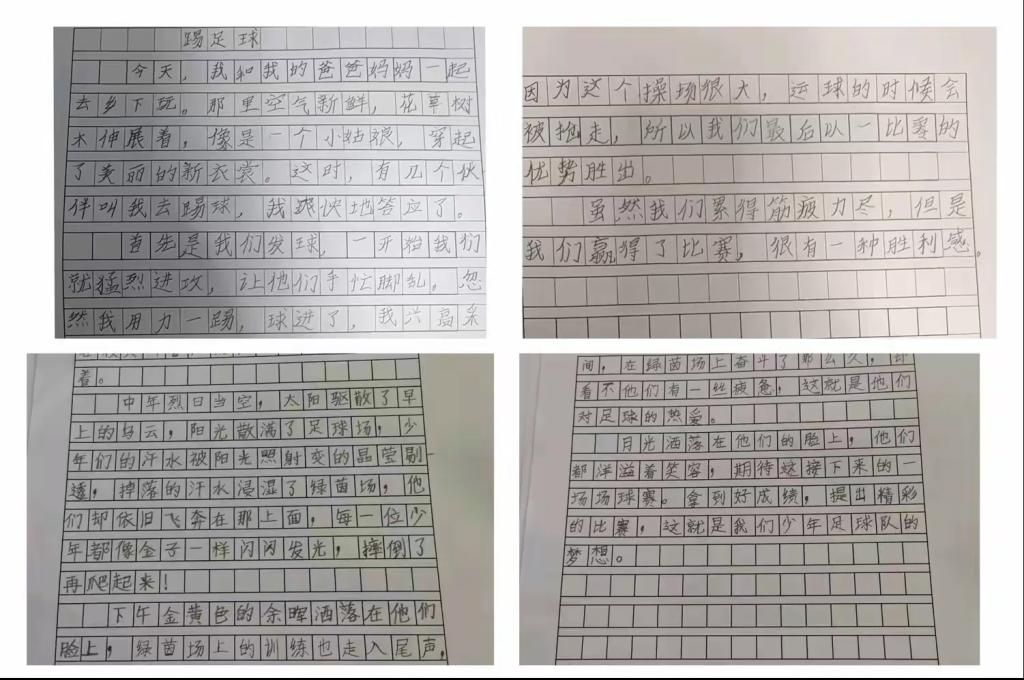 踢足球
今天，我和我的爸爸妈妈一起
去乡下玩。那里空气新鲜，花草树
木伸展着，像是一个小姑娘，穿起
了美丽的新衣裳。这时，有几个伙
伴叫我去踢球，我爽快地答应了。
首先是我们发球，一开始我们
就猛烈进攻，让他们手忙脚乱。忽
然我用力一踢，球进了，我兴高采
因为这个操场很大，运球的时候会
被抢走，所以我们最后以一比零的
优势胜出。
虽然我们累得筋疲力尽，但是
我们赢得了比赛，很有一种胜利感。
着。
中年烈日当空，太阳驱散了早
上的乌云，阳光散满了足球场，少
年们的汗水被阳光照射变的晶莹剔
透，掉落的汗水浸湿了绿茵场，他
们却依旧飞奔在那上面，每一位少
年都像金子一样闪闪发光，摔倒了
再爬起来！
下午金黄色的余晖洒落在他们
脸上，绿茵场上的训练也走入尾声，
间，在绿茵场上奋斗了那么久，却
看不他们有一丝疲惫，这就是他们
对足球的热爱。
月光洒落在他们的脸上，他们
都洋溢着笑容，期待这接下来的一
场场球赛。拿到好成绩，提出精彩
的比赛，这就是我们少年足球队的
梦想。